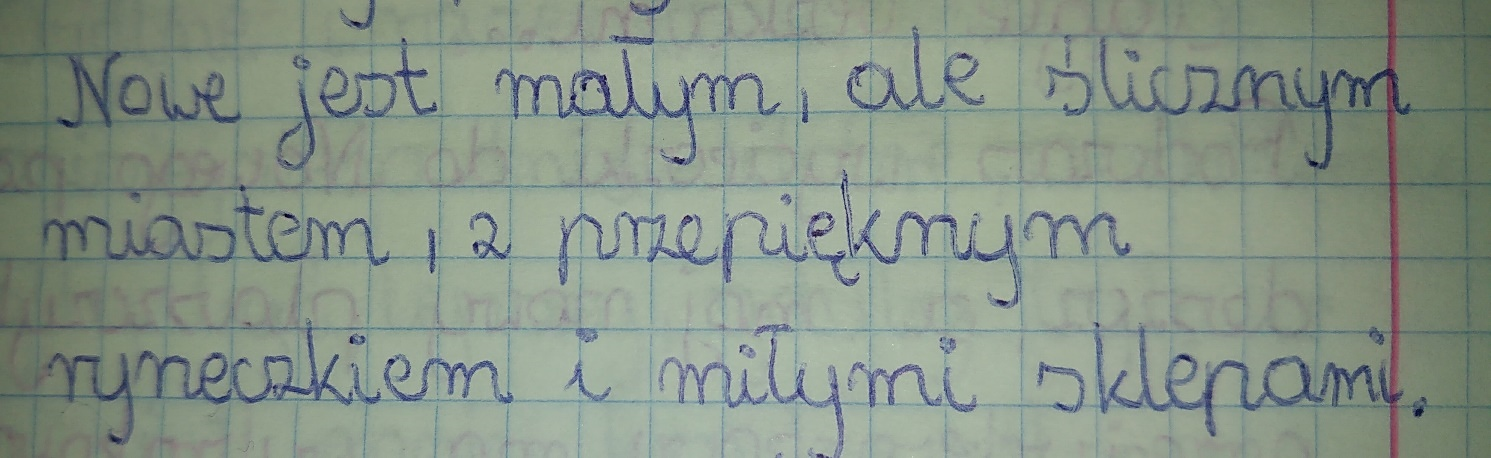 Nowe jest małym, ale ślicznym
miastem, z przepięknym
ryneczkiem i miłymi sklepami.